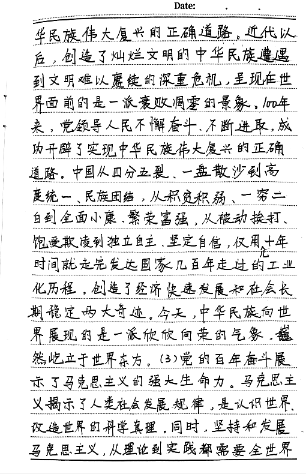 Date:
华民族伟大复兴的正确道路。近代以
后，创造了灿烂文明的中华民族遭遇
到文明难以赓续的深重危机，呈现在世
界面前的是一派衰败凋零的景象。100年
来，党领导人民不懈奋斗、不断进取，成
功开辟了实现中华民族伟大复兴的正确
道路。中国从四分五裂、一盘散沙到高
度统一、民族团结，从积贫积弱、一穷二
白到全面小康、繁荣富强，从被动挨打、
饱受欺凌到独立自主、坚定自信，仅用几十年
时间就走完发达国家几百年走过的工业
化历程，创造了经济快速发展和社会长
期稳定两大奇迹。今天，中华民族向世
界展现的是一派欣欣向荣的气象，巍
然屹立于世界东方。(3)党的百年奋斗展
示了马克思主义的强大生命力。马克思主
义揭示了人类社会发展规律，是认识世界、
改造世界的科学真理。同时，坚持和发展
马克思主义，从理论到实践都需要全世界